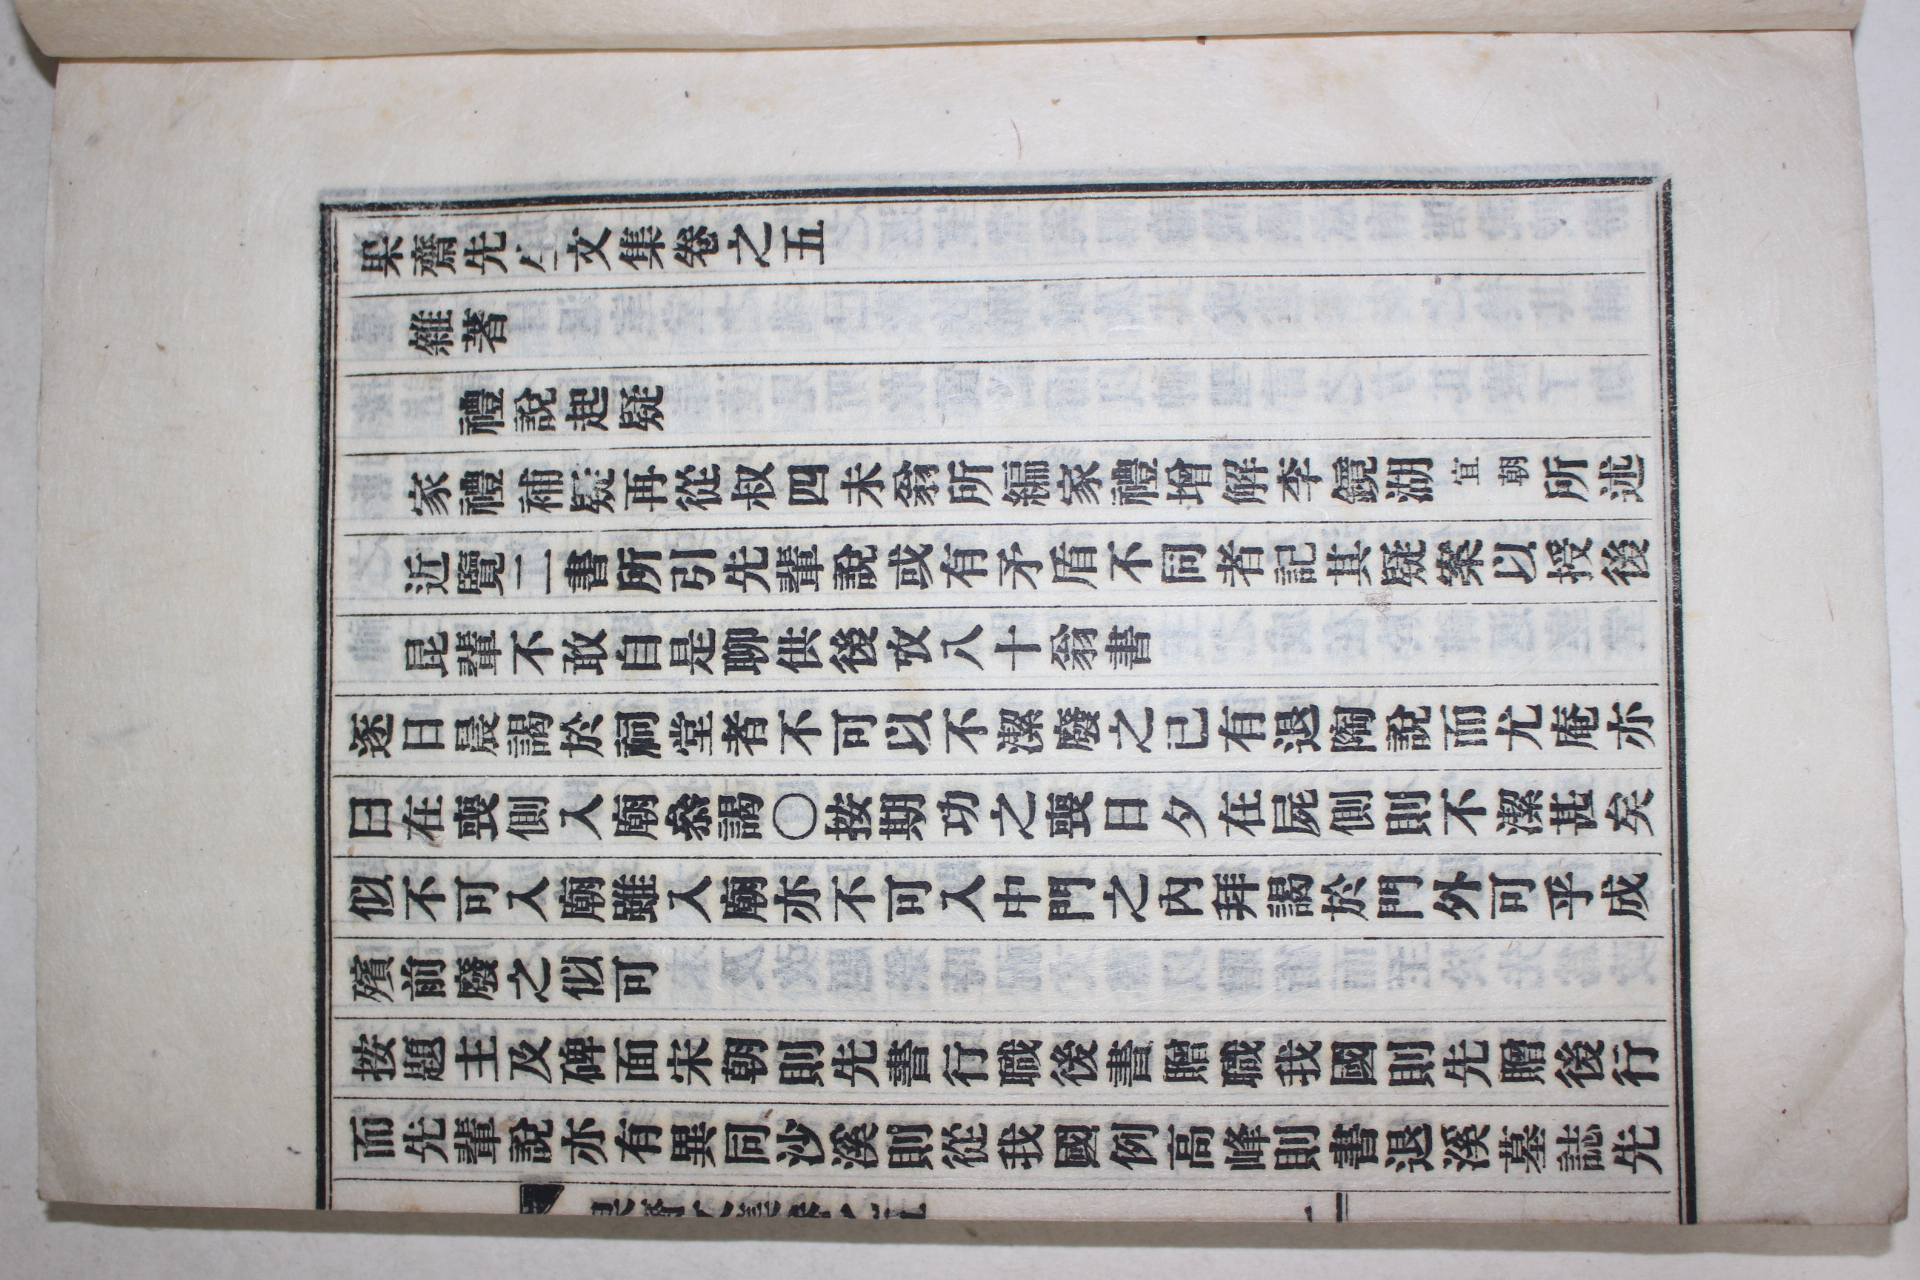 果齋先生文集卷之五
雜著
禮說起疑
家禮補疑再從叔四未翁所編家禮增解李鏡湖宜朝所述
近覽二書所引先輩說或有矛盾不同者記其疑案以授後
昆輩不敢自是聊供後攷八十翁書
逐日晨謁於祠堂者不可以不潔廢之已有退陶說而尤庵亦
曰在喪側入廟叅謁○按期功之喪日夕在屍側則不潔甚矣
似不可入廟雖入廟亦不可入中門之內拜謁於門外可乎成
殯前廢之似可
按題主及碑面宋朝則先書行職後書贈職我國則先贈後行
而先輩說亦有異同沙溪則從我國例高峰則書退溪墓誌先
果齋文集卷之五
一